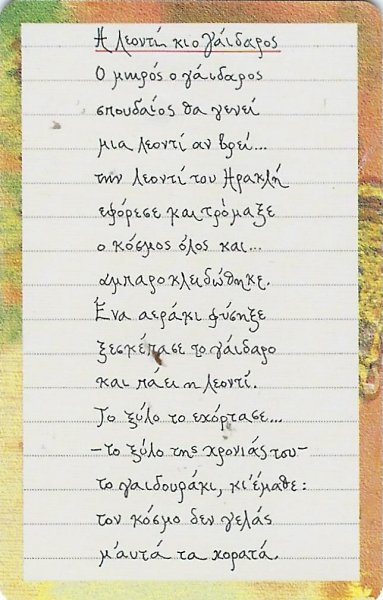 Η λεοντή κι ο γάιδαρος
Ο μικρός ο γάιδαρος
σπουδαίος θα γενεί
μια λεοντί αν βρει...
την λεοντί του Ηρακλή
εφόρεσε και τρόμαξε
ο κόσμος όλος και...
αμπαροκλειδώθηκε.
Ένα αεράκι φύσηξε
ξεσκέπασε το γάιδαρο
και πάει η λεοντί.
Το ξύλο το εχόρτασε...
-το ξύλο της χρονιάς του-
το γαιδουράκι, κι'έμαθε:
τον κόσμο δεν γελάς
μ'αυτά τα χορατά.